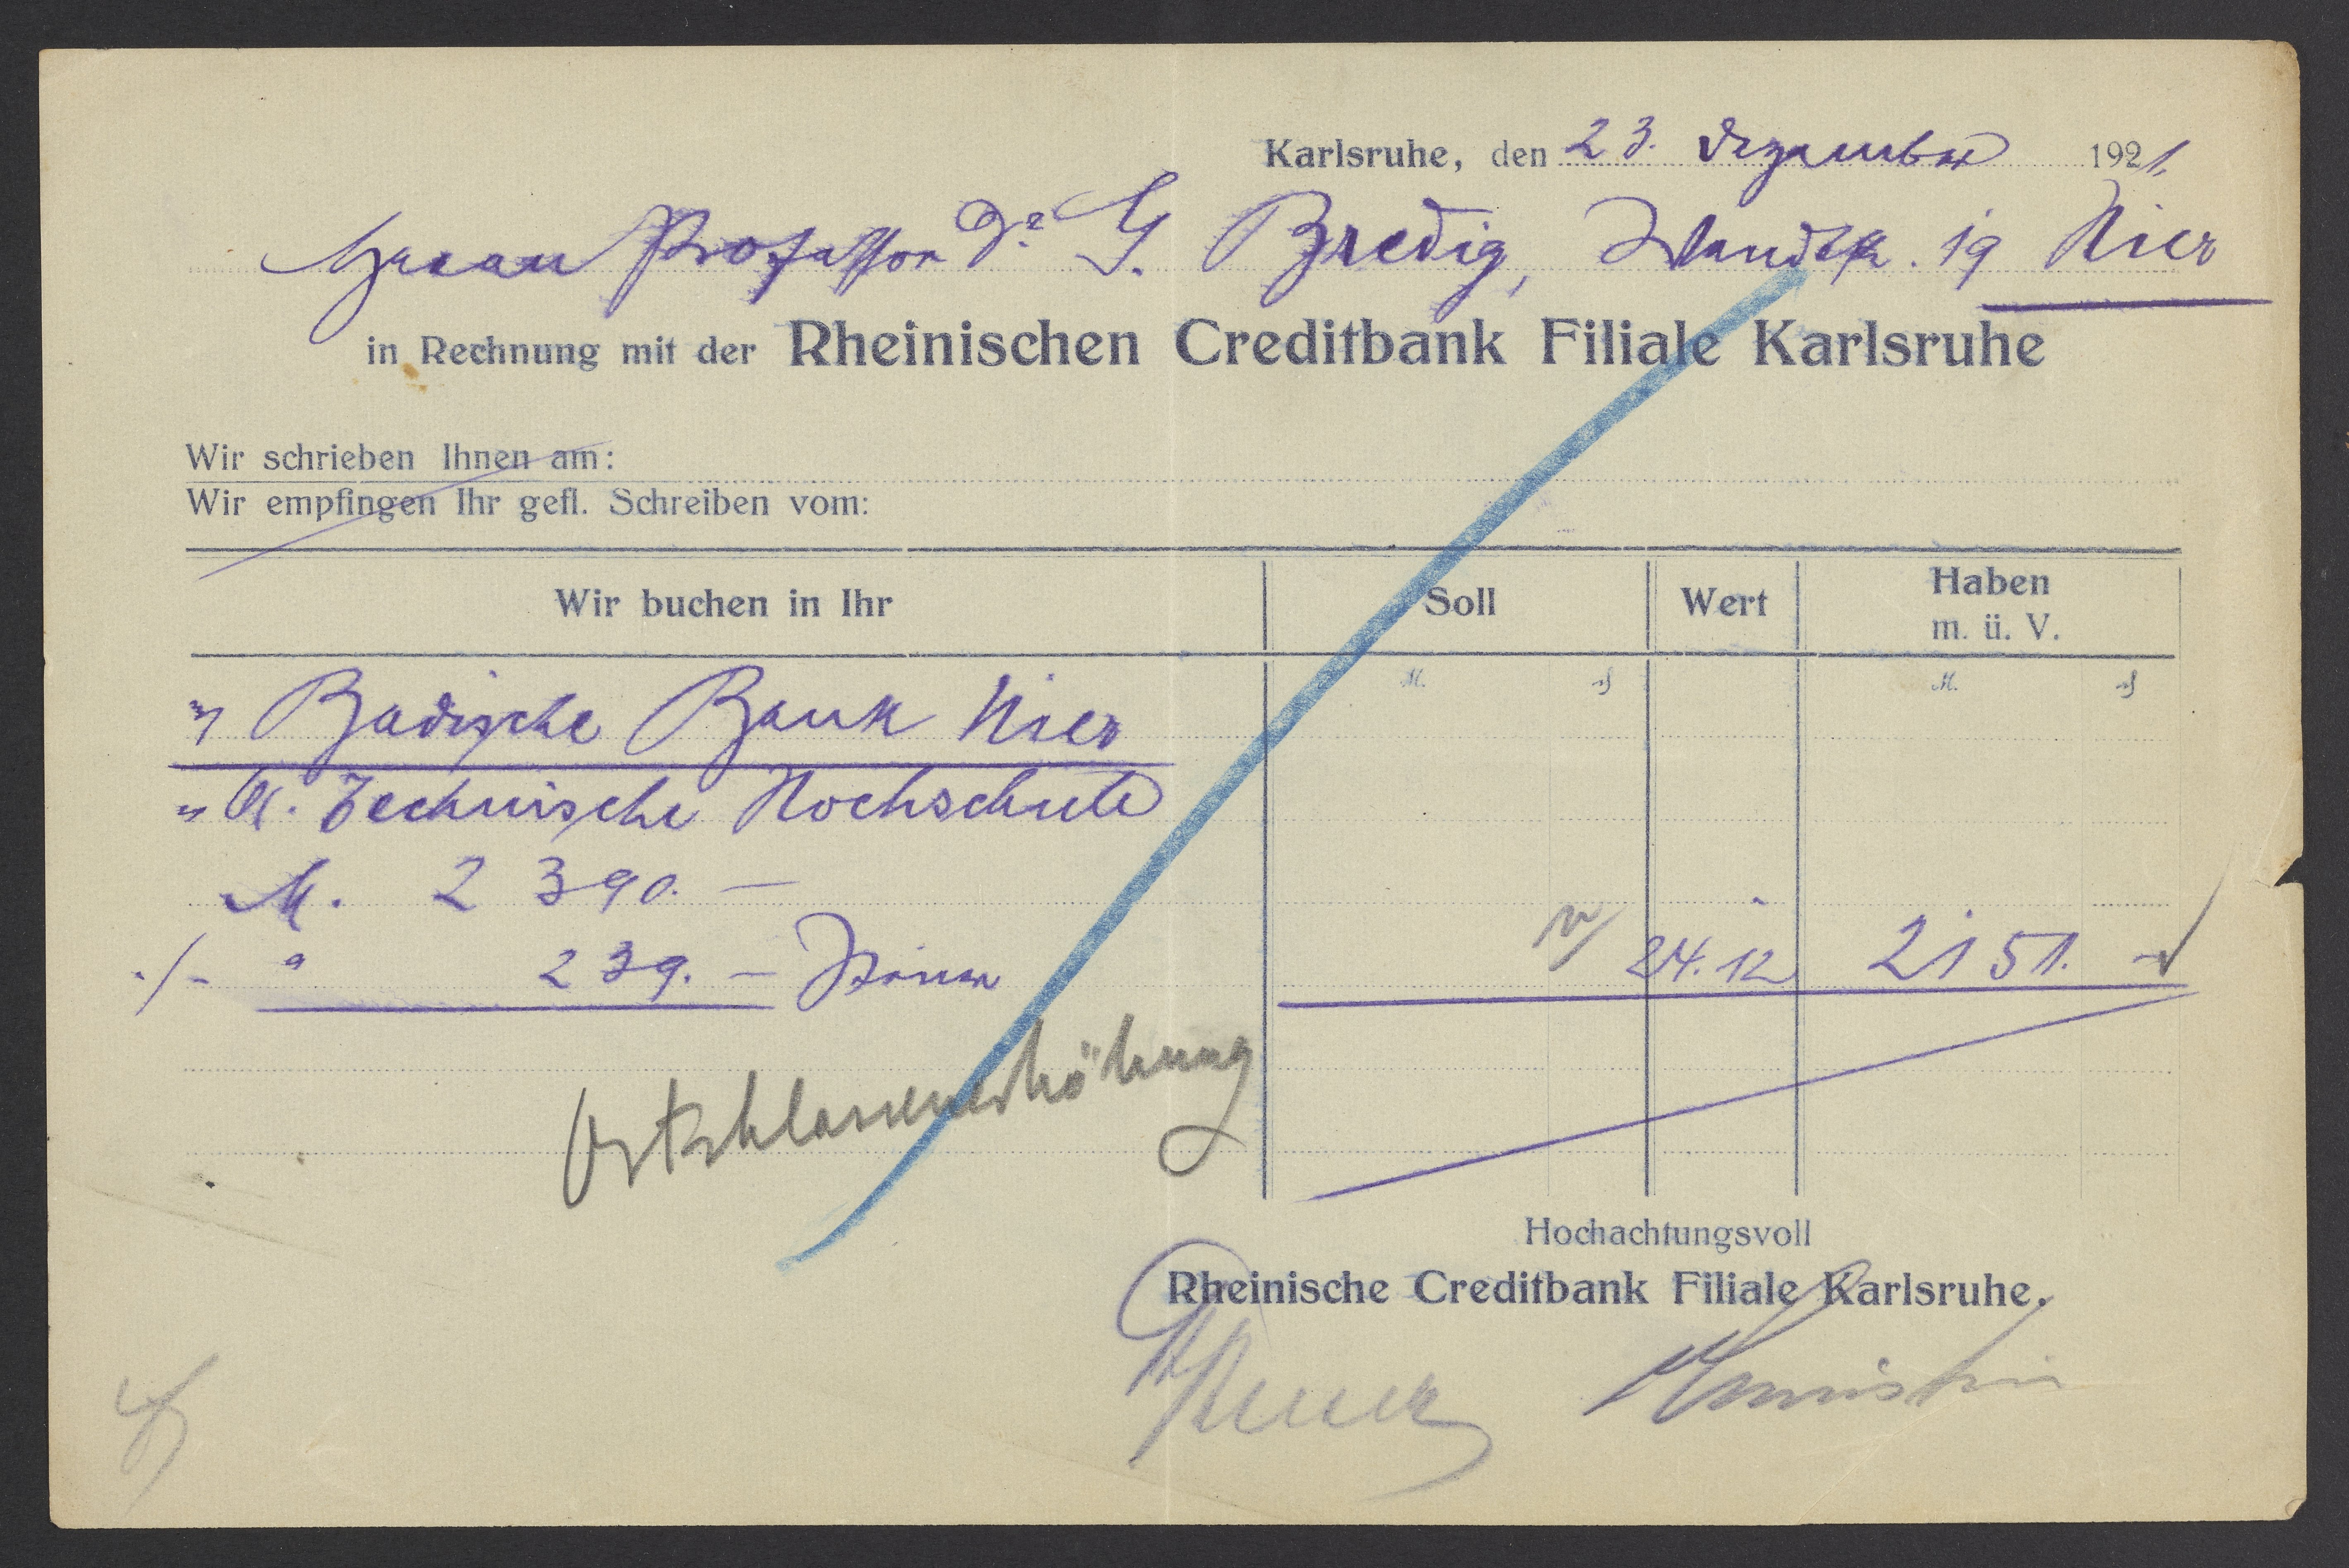 Karlsruhe, den 23. Dezember 1921.
Herrn Professor Dr. G. Bredig, 19 Hier
in Rechnung mit der Rheinischen Creditbank Filiale Karlsruhe
Wir schrieben Ihnen am:
Wir empfingen Ihr gefl. Schreiben vom:
Wir buchen in Ihr Soll Wert Haben
m. ü. V.
M. ₰ M. ₰
" Badische Bank Hier
" Technische Hochschule
M. 2 390. —
./. " 239. — Steuer 24.12 2151. —
Ortsklassenerhöhung
Hochachtungsvoll
Rheinische Creditbank Filiale Karlsruhe.